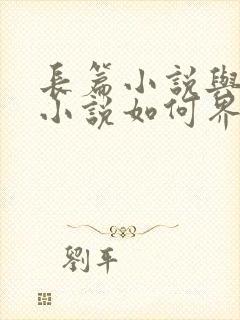 長篇小說與
小說如何界
劉平